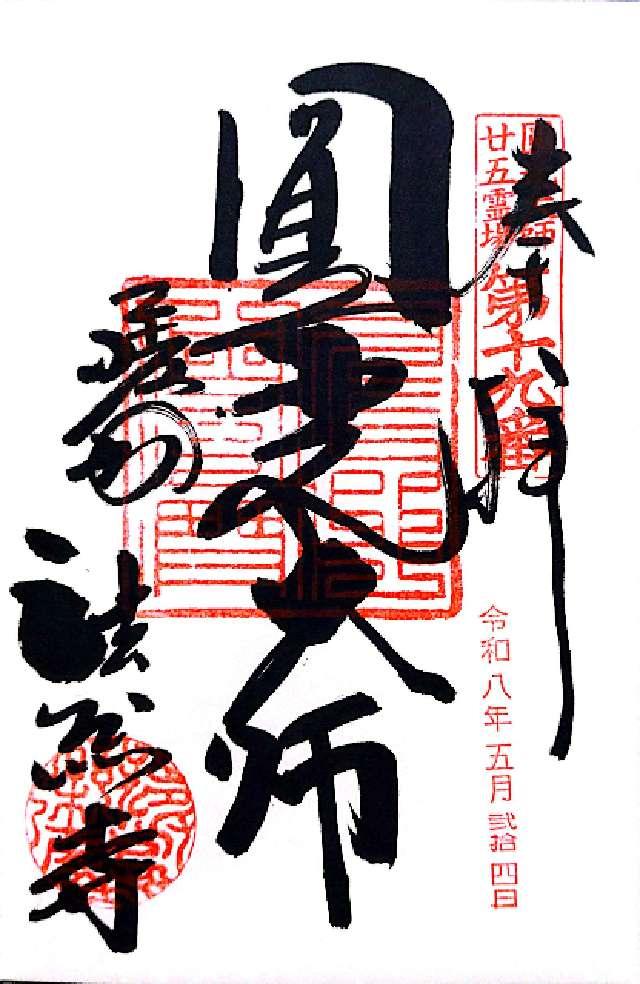 圓光大師
廿五霊場
第十九番
奉拝
令和八年五月弐拾四日
圓光大師
法然寺